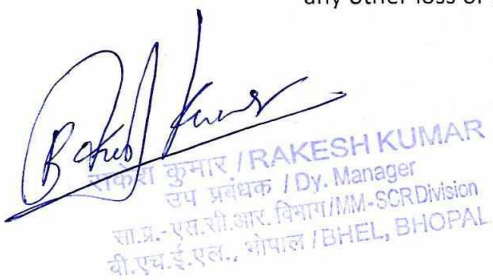 any other loss or
Rakesh Kumar
राकेश कुमार / RAKESH KUMAR
उप प्रबंधक / Dy. Manager
सा.प्र.-एस.सी.आर. विभाग/MM-SCR Division
बी.एच.ई.एल., भोपाल / BHEL, BHOPAL